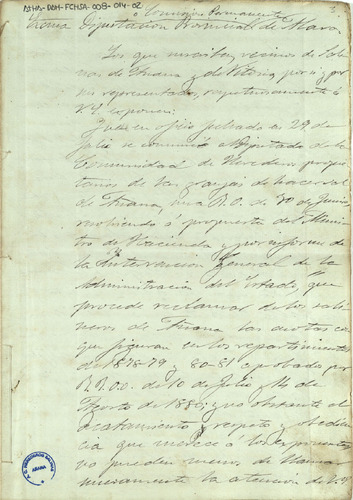 ATHA-DAH-FCHSA-008-014-02
ó Comisión Permanente
Excma Diputación Provincial de Alava
Los que suscriben, vecinos de Sali-
nas de Añana y de Vitoria, por sí y por
sus representados, respetuosamente á
V.E. exponen:
Que en oficio fechado en 29 de
Julio se comunicó al Diputado de la
Comunidad de Herederos propie-
tarios de las granjas de hacer sal
de Añana, una R.O. de 30 de Junio
resolviendo á propuesta del Minis-
tro de Hacienda y por informe de
la Intervención General de la
Administración del Estado, que
procede reclamar de los sali-
neros de Añana las cuotas con
que figuran en los repartimientos
de 1878-79 y 80-81 aprobados por
R.R.O.O. de 10 de Julio y 14 de
Agosto de 1880; y no obstante el
acatamiento y respeto y obedien-
cia que merece á los exponentes
no pueden menos de llamar
nuevamente la atención de V.E.
AÑANA